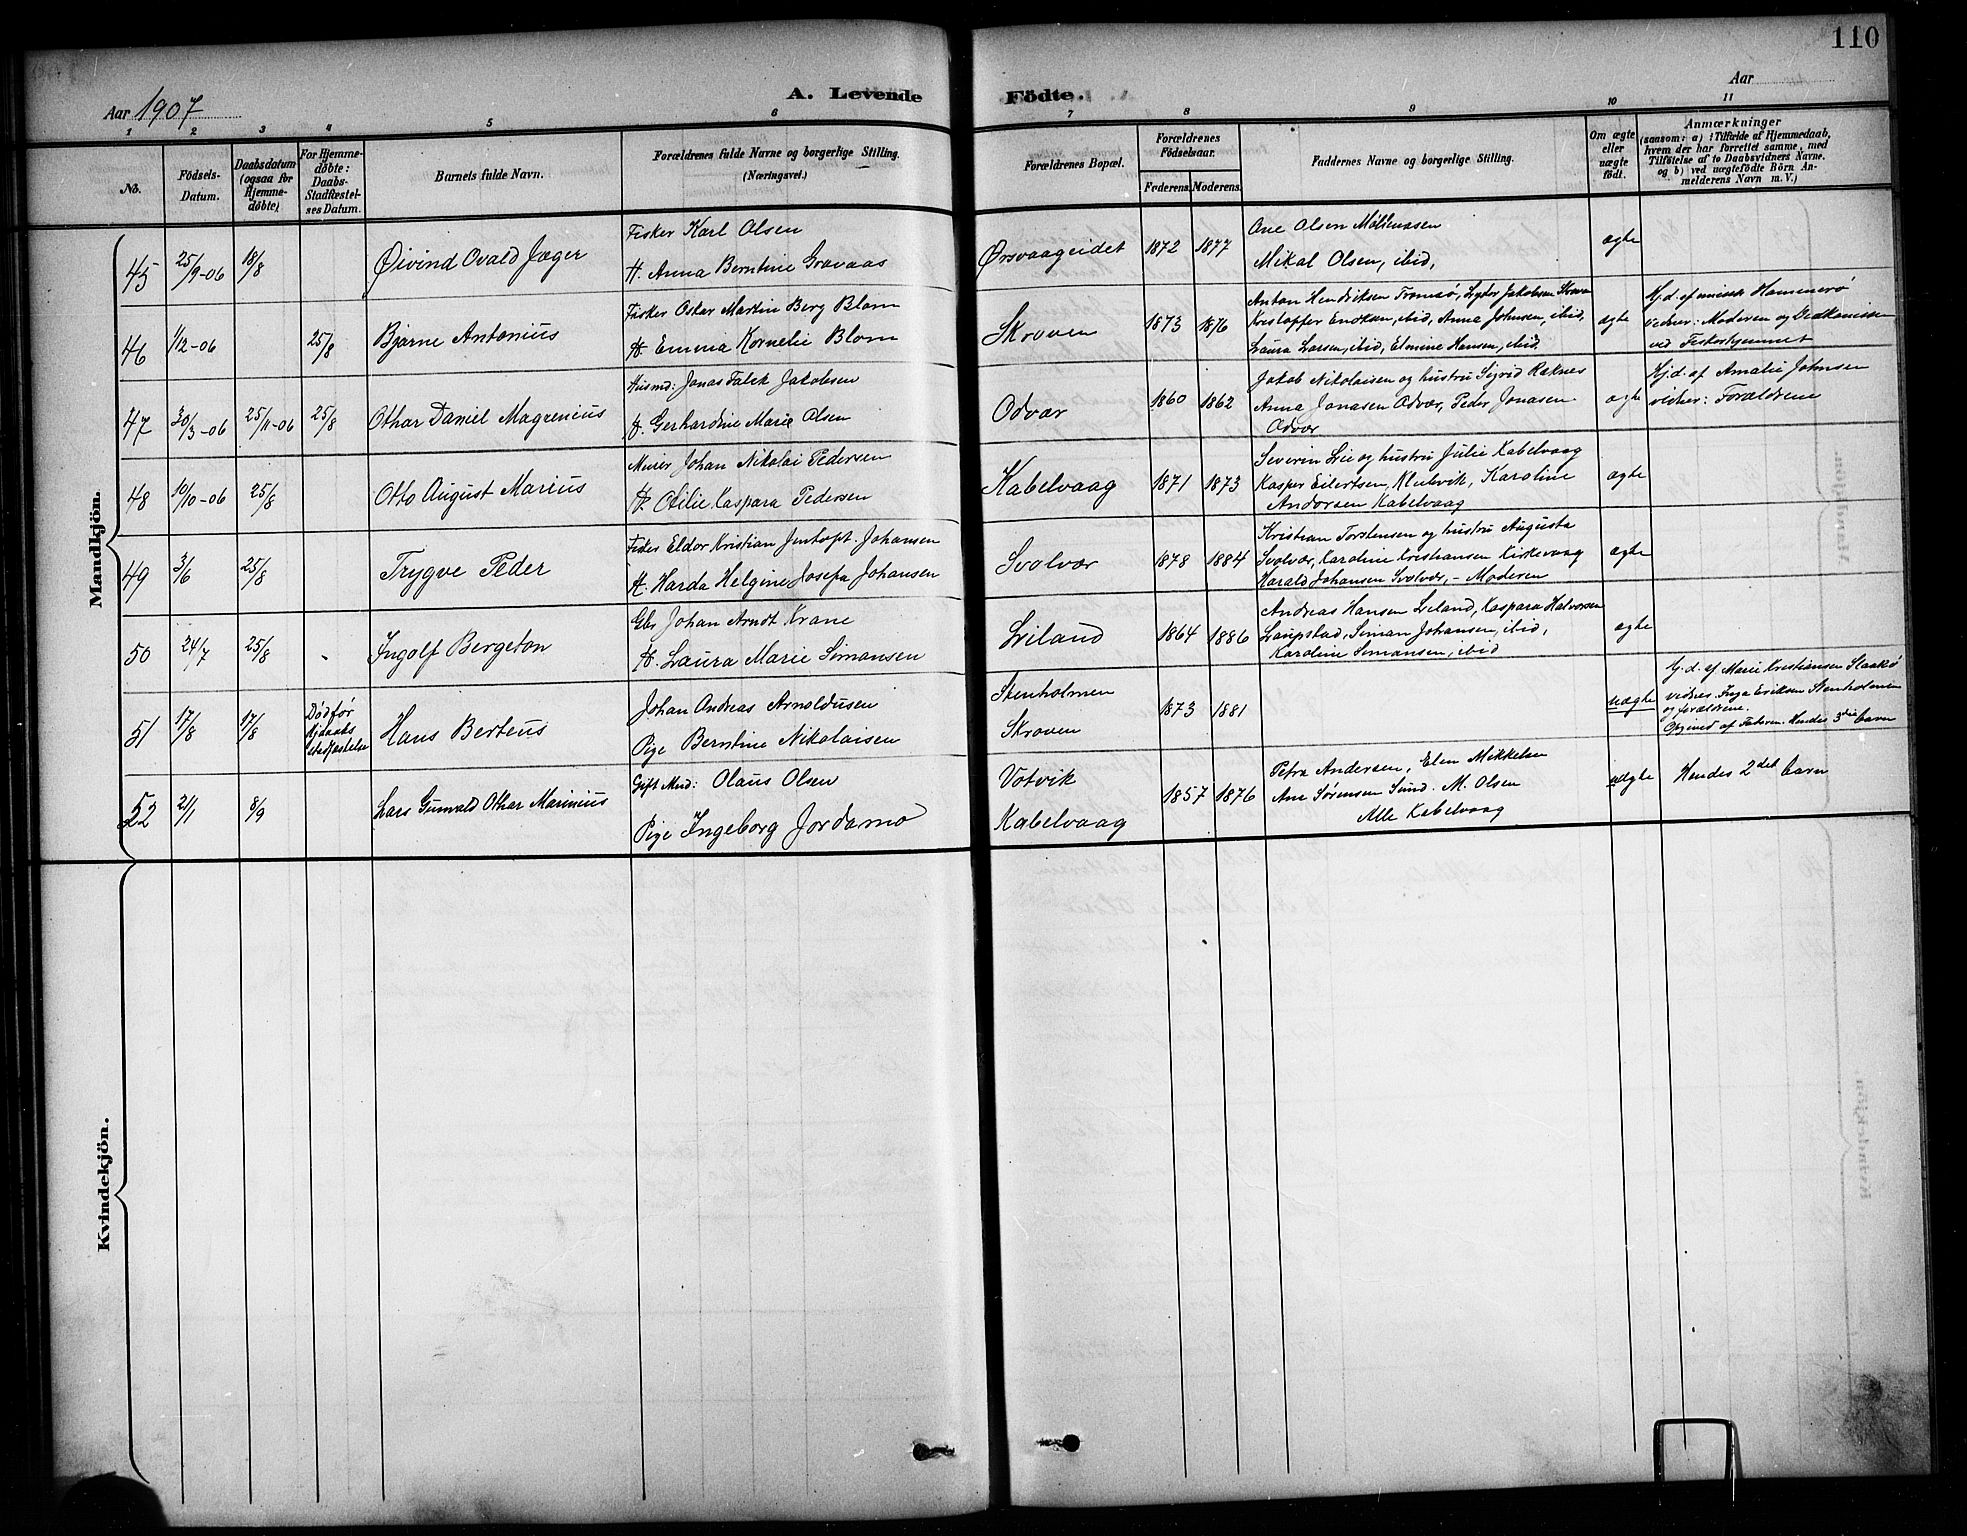 110
Aar 1907
A. Levende Födte.
Aar
1 2 3 4 5 6 7 8 9 10 11
No.
Födsels-Datum.
Daabsdatum (ogsaa for Hjemme-døbte).
For Hjemme-døbte: Daabs-Stadfæstel-ses Datum.
Barnets fulde Navn.
Forældrenes fulde Navne og borgerlige Stilling.
(Næringsvei.)
Forældrenes Bopæl.
Forældrenes Födselsaar.
Faderens. Moderens.
Faddernes Navne og borgerlige Stilling.
Om ægte eller uægte födt.
Anmærkninger
(saasom: a) i Tilfælde af Hjemmedaab, hvem der har forrettet samme, med Tilföielse af to Daabsvidners Navne, og b) ved uægtefödte Börn Anmelderens Navn m. V.)
Mandkjön.
45 25/9-06 18/8 Øivind Ovald Jæger
Fisker Karl Olsen
H. Anna Berntine Gravaas
Ørsvaageidet 1872 1877
Ane Olsen
Mikal Olsen, ibid,
ægte
46 1/12-06 25/8 Bjarne Antonius
Fisker Oskar Martin Berg Blom
H. Emma Kornelie Blom
Skroven 1873 1876
Anton Hendriksen Tromsø, Lydor Jakobsen Skroven
Kristoffer Enoksen, ibid, Anna Johnsen, ibid,
Laura Larsen, ibid, Elmine Hansen, ibid.
ægte
Hj.d. af
vidner: Moderen og
ved
47 30/3-06 25/11-06 25/8 Othar Daniel Magrenius
Husmd: Jonas Falck Jakobsen
H. Gerhardine Marie Olsen
Odvær 1860 1862
Jakob Nikolaisen og hustru Sigrid Raknes
Anna Jonasen Odvær, Peder Jonasen
Odvær
ægte
Hj.d. af Amalie Johnsen
vidner: Forældrene
48 10/10-06 25/8 Otto August Marius
Murer Johan Nikolai Pedersen
H. Otilie Kaspara Pedersen
Kabelvaag 1871 1873
Severin Lie og hustru Julie Kabelvaag
Kasper Eilertsen, Klubvik, Karoline
Andorsen Kabelvaag
ægte
49 3/6 25/8 Trygve Peder
Fisker Eldor Kristian Jentoft Johansen
H. Harda Helgine Josefa Johansen
Svolvær 1878 1884
Kristian Torstensen og hustru Augusta
Svolvær, Karoline Kristiansen Kirkevaag
Harald Johansen Svolvær, - Moderen
ægte
50 24/7 25/8 Ingolf Bergeton
Gbr Johan Arndt Krane
H. Laura Marie Simonsen
Liland 1864 1886
Andreas Hansen Liland, Kaspara Halvorsen
Laupstad, Simon Johansen, ibid,
Karoline Simonsen, ibid
ægte
51 17/8 17/8 Død før
Hjdaabs
stadfæstelse
Hans Berteus
Johan Andreas Arnoldusen
Pige Berntine Nikolaisen
Stenholmen
Skroven
1873 1881
uægte
Hj.d. af Marie Kristiansen
vidner. Inga Eriksen Stenholmen
og forældrene.
Opgived af Faderen. Hendes 3die barn
52 21/1 8/9 Lars Gunvald Othar Marinius
Gift Mnd: Olaus Olsen
Pige Ingeborg Jordamo
Votvik
Kabelvaag
1857 1876
Petra Andersen, Elen Mikkelsen
Ane Sørensen Sund. M. Olsen
Alle Kabelvaag
uægte
Hendes 2det barn
Kvindekjön.